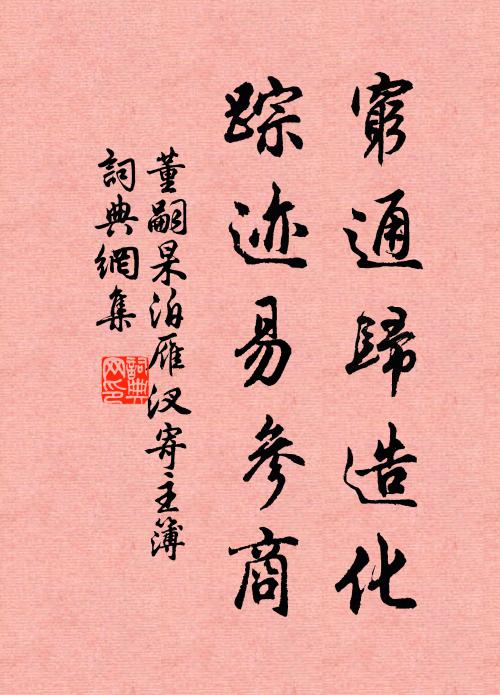 窮通歸造化
踪迹易參商
董嗣杲泊雁汊寄主簿
詞典網集
詞典網印